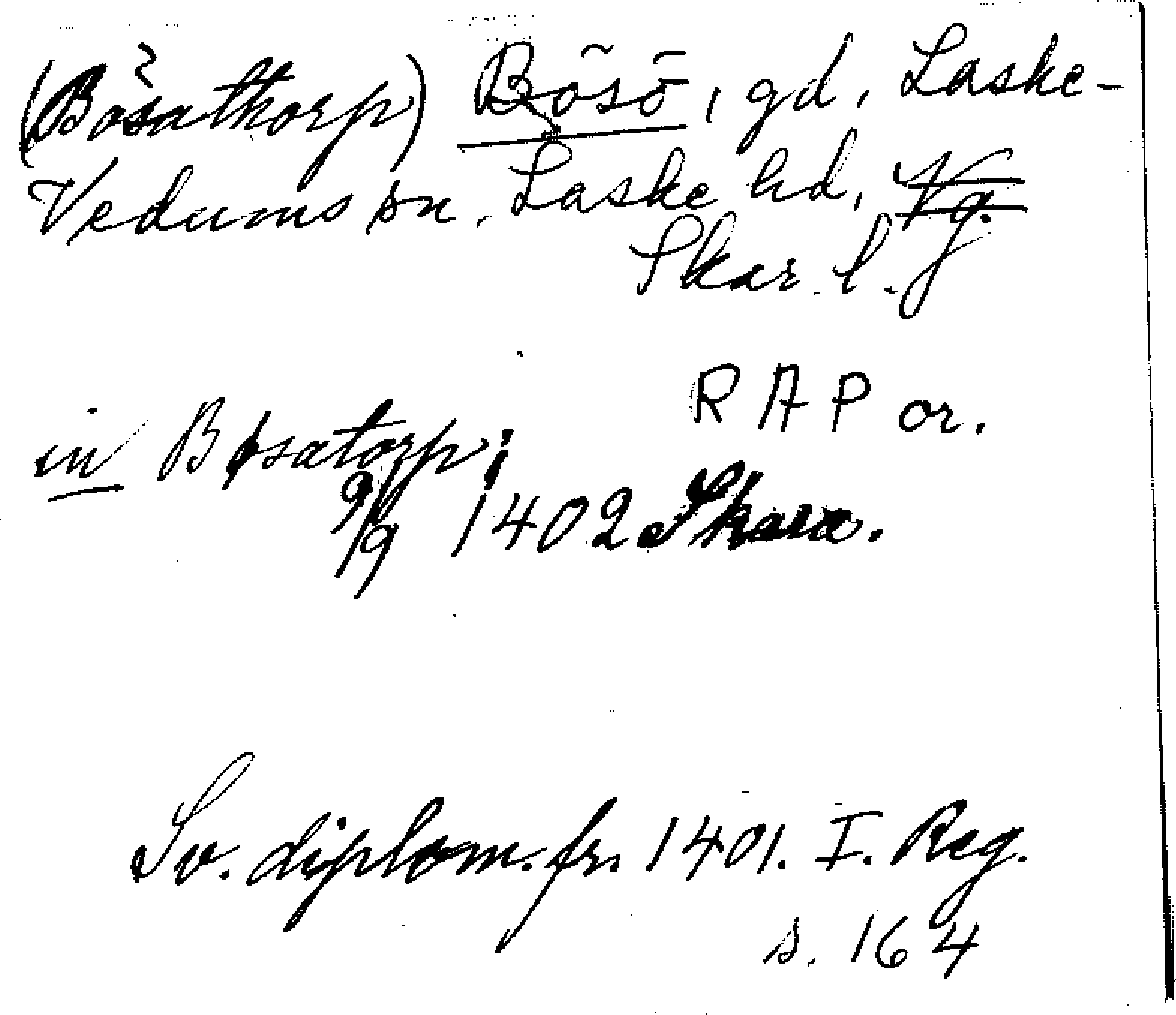 (Bösathorp) Bösö, gd, Laske-
Vedums sn. Laske hd, Vg.
Skar. l.
RAP or.
in Bøsatorp;
9/9 1402 Skara.
Sv. diplom. fr. 1401. I. Reg.
s. 164